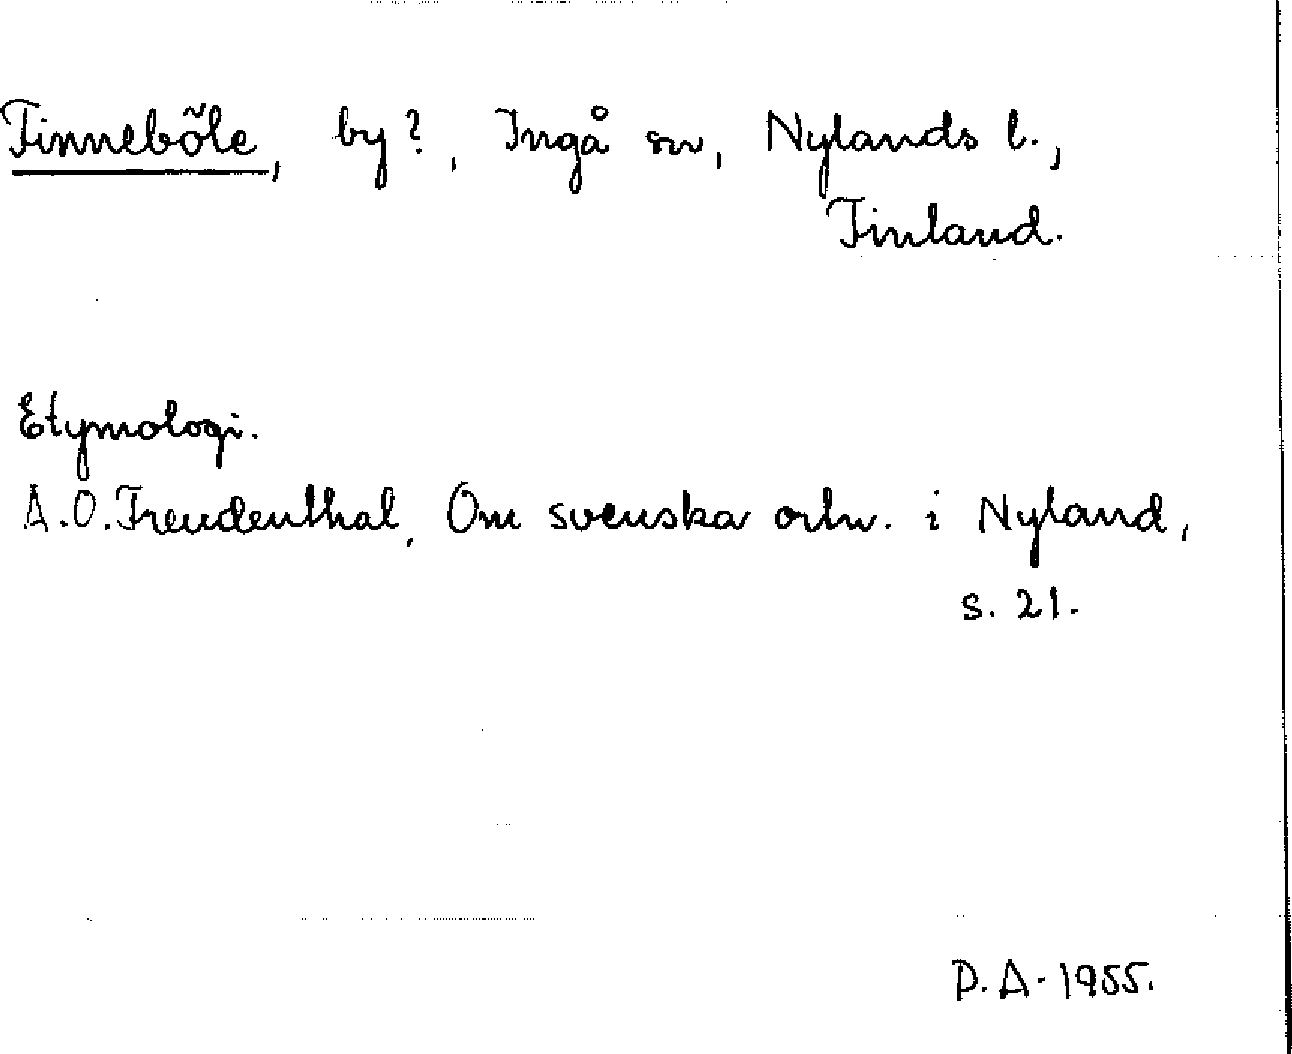 Finneböle, by?, Ingå sn, Nylands l.,
Finland.
Etymologi.
A.O. Freudenthal, Om svenska ortn. i Nyland,
s. 21.
P.A. 1955.